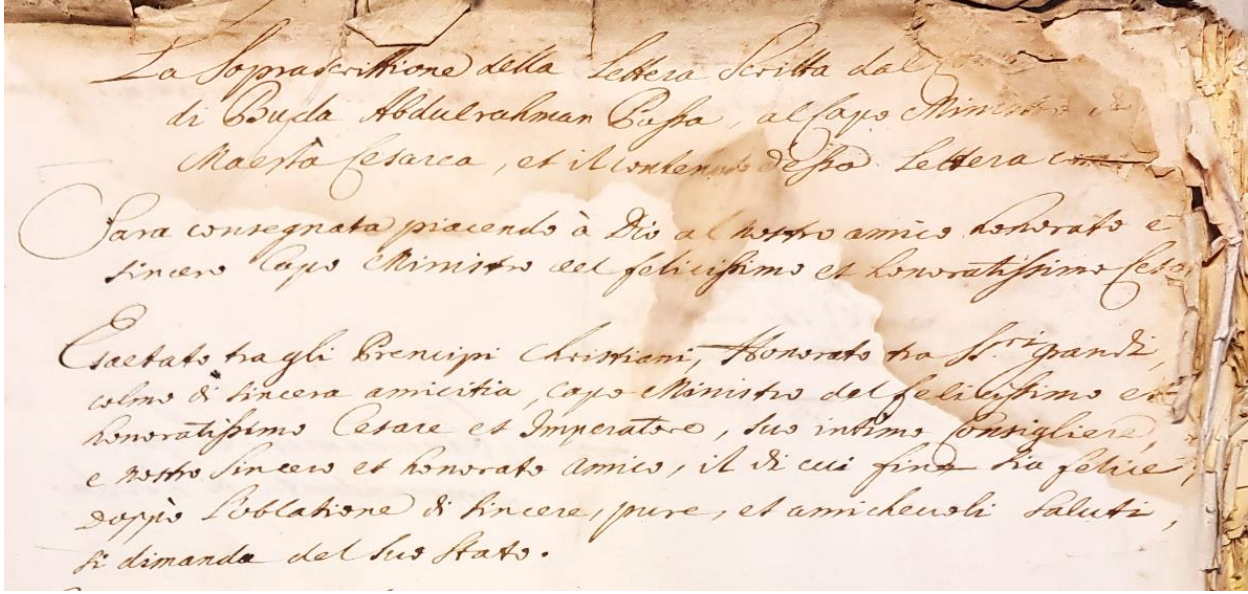 La Soprascrittione della Lettera Scritta dal
di Buda Abdulrahman Bassa, al Capo Ministro
Maestà Cesarea, et il contenuto d'essa Lettera
Sara consegnata piacendo à Dio al nostro amico honorato e
sincero Capo Ministro del felicissimo et honoratissimo
Esaltato tra gli Prencipi Christiani, Honorato tra SS.ri grandi,
colmo di sincera amicitia, capo Ministro del felicissimo et
honoratissimo Cesare et Imperatore, suo intimo Consigliere,
e nostro sincero et honorato amico, il di cui fine sia felice,
doppò l'oblatione di sincere, pure, et amichevoli saluti,
si dimanda del suo stato.